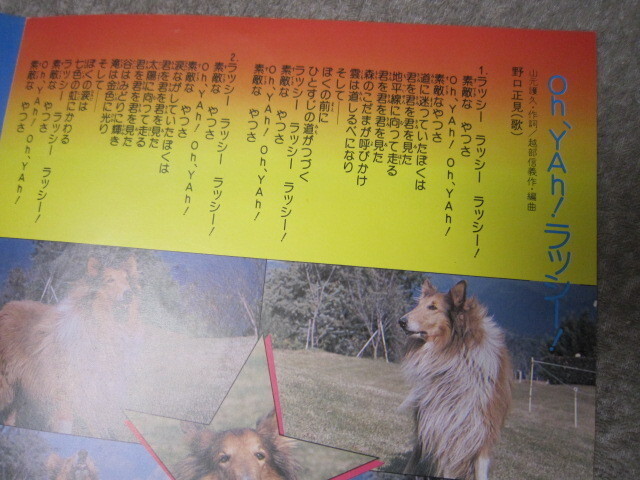 Oh, YAh! ラッシー!
山上護久・作詞/越部信義作・編曲
野口正見(歌)
1.ラッシー ラッシー ラッシー!
素敵な やつさ
Oh, YAh! Oh, YAh!
素敵なやつさ
道に迷っていたぼくは
君を君を君を見た
地平線に向って走る
君を君を君を見た
森のこだまが呼びかけ
雲は道しるべになり
そして——
ぼくの前に
ひとすじの道がつづく
ラッシー ラッシー ラッシー!
素敵な やつさ
Oh, YAh! Oh, YAh!
素敵な やつさ
2.ラッシー ラッシー ラッシー!
素敵な やつさ
Oh, YAh! Oh, YAh!
素敵な やつさ
涙ながしていたぼくは
君を君を君を見た
太陽に向って走る
君を君を君を見た
谷はみどりに輝き
滝は金色に光り
そして——
ぼくの涙は
七色の虹にかわる
ラッシー ラッシー ラッシー!
素敵な やつさ
Oh, YAh! Oh, YAh!
素敵な やつさ